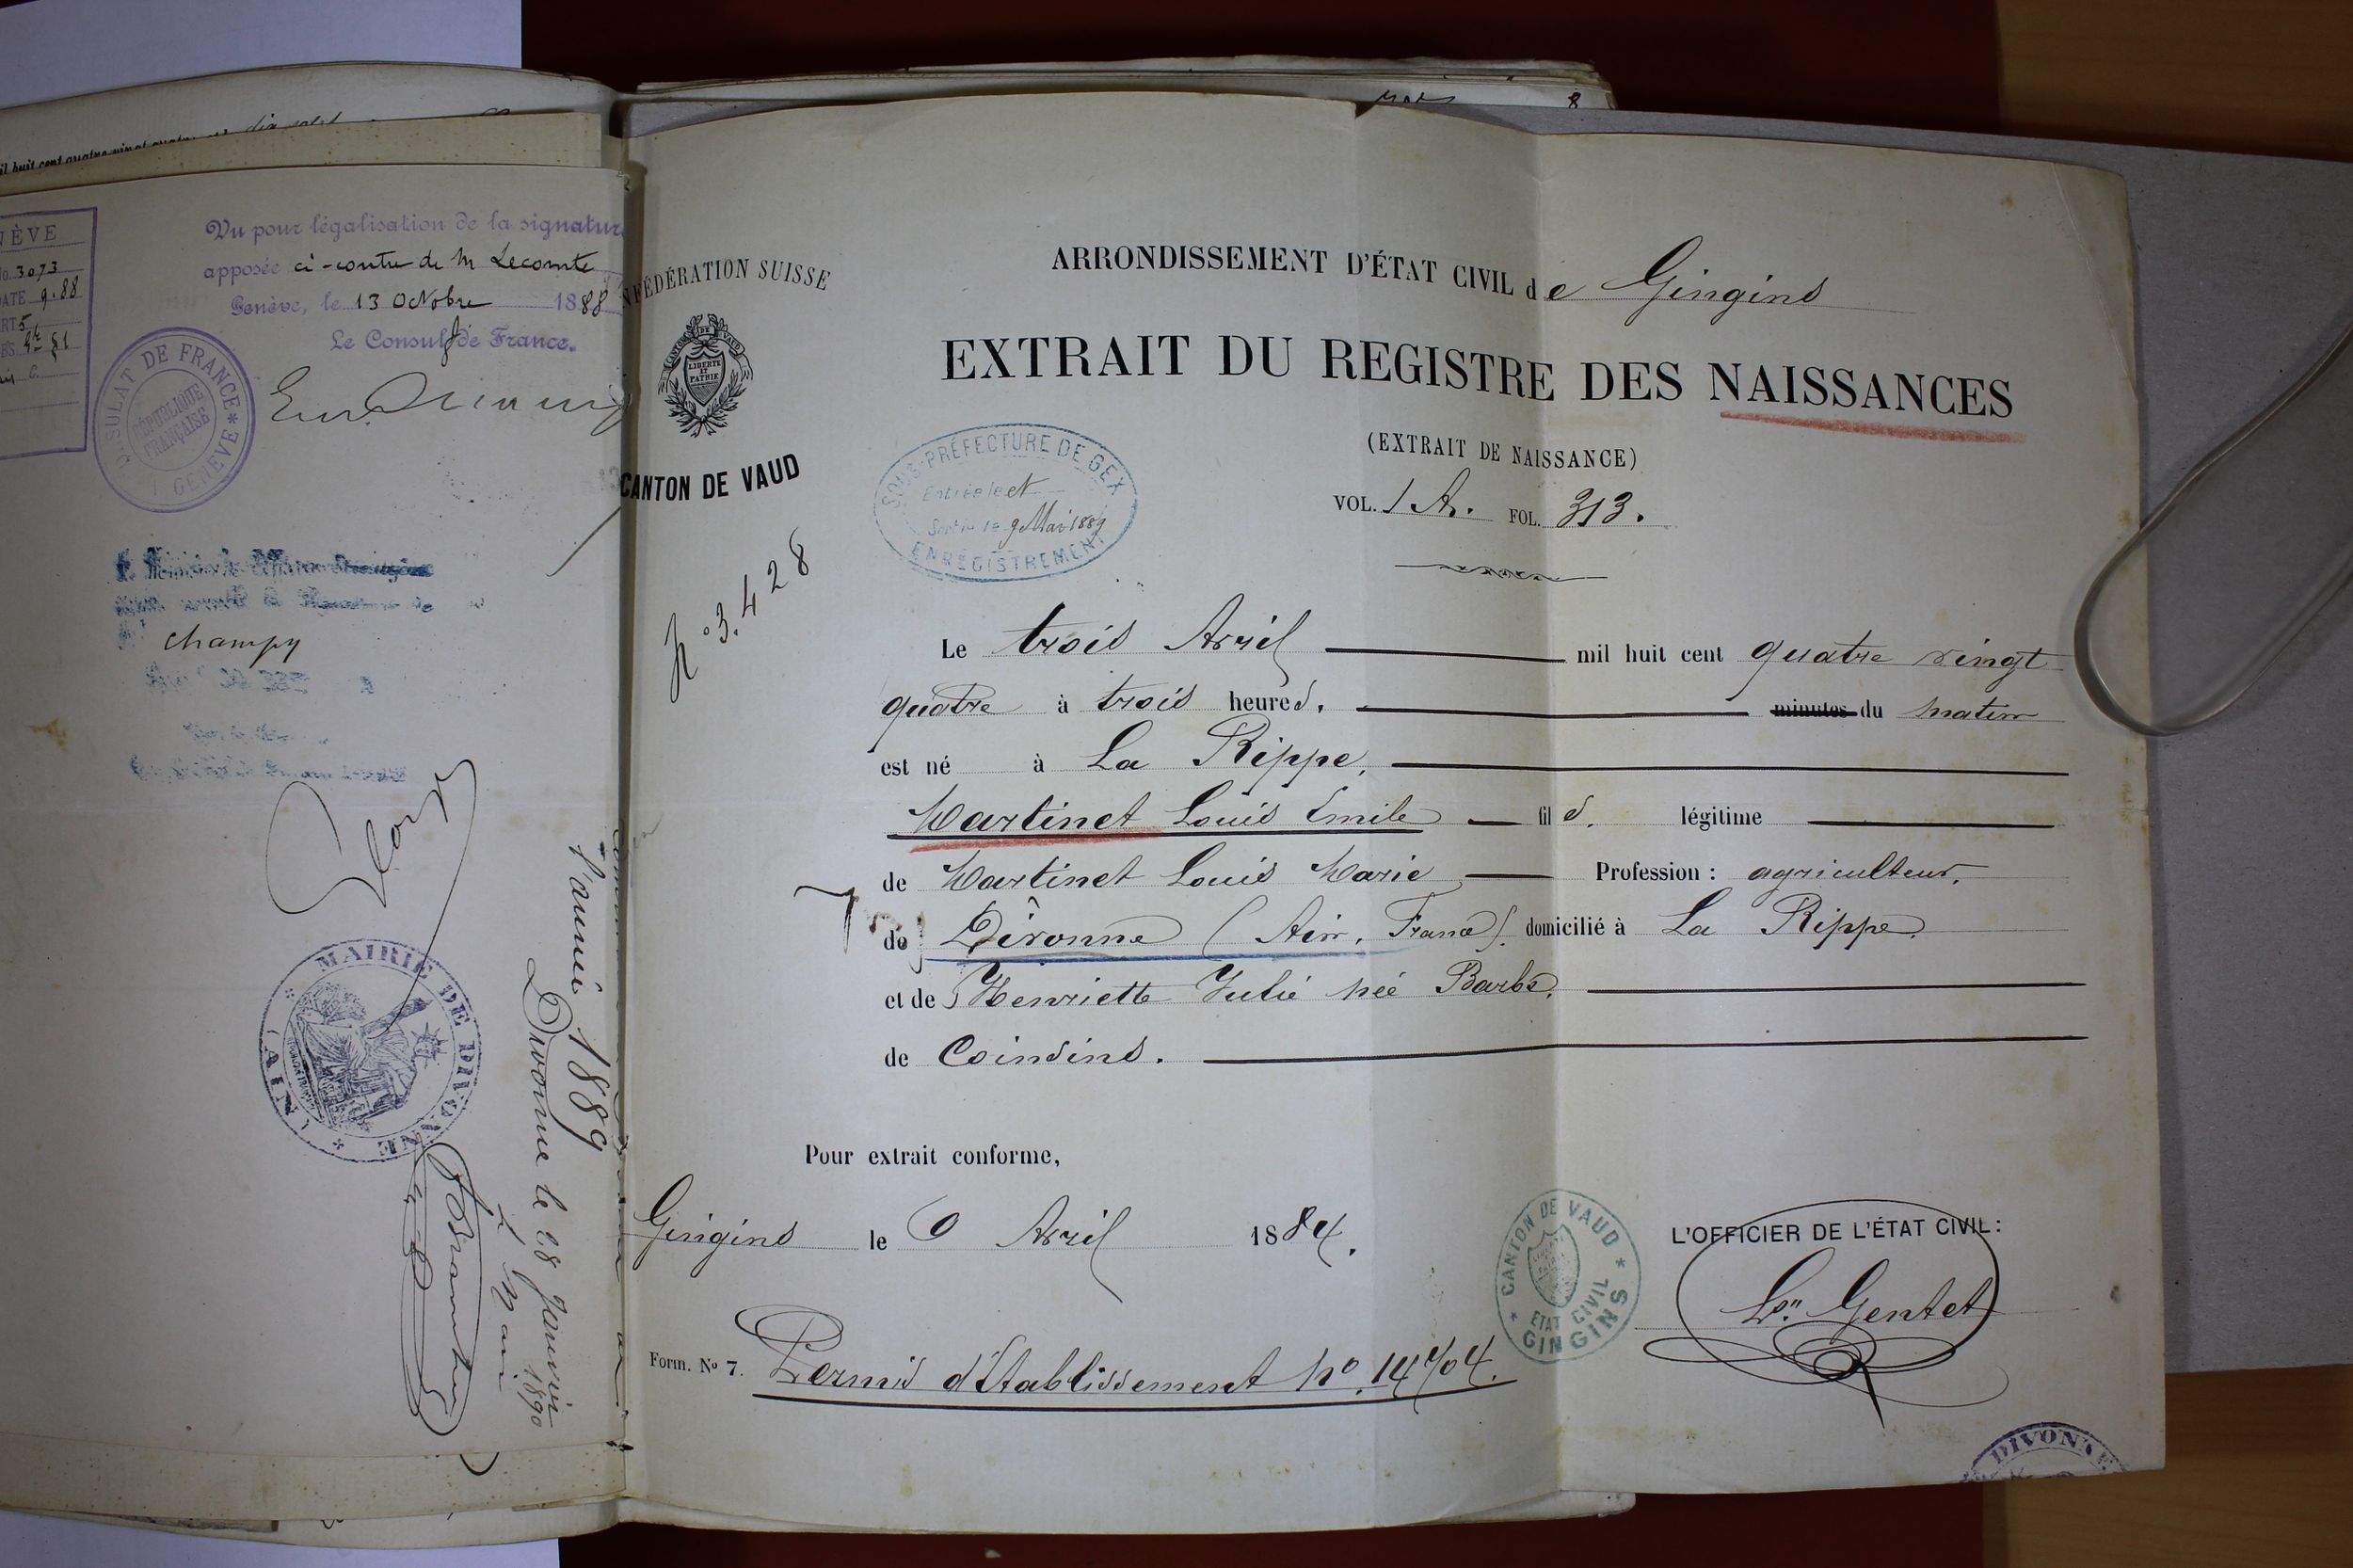 il huit cent quatre-vingt quatre
NÈVE
No. 3073
DATE 9.88
ART 5
Vu pour légalisation de la signature
apposée ci-contre de M Lecomte
Genève, le 13 Octobre 1888
Le Consul de France.
CONSULAT DE FRANCE * GENÈVE *
RÉPUBLIQUE
FRANÇAISE
champy
MAIRIE DE DIVONNE
(AIN)
l'année 1889
Divonne le 28 Janvier 1890
Le Maire
CONFÉDÉRATION SUISSE
CANTON DE VAUD
LIBERTÉ
ET
PATRIE
CANTON DE VAUD
No 3.428
ARRONDISSEMENT D'ÉTAT CIVIL de Gingins
EXTRAIT DU REGISTRE DES NAISSANCES
(EXTRAIT DE NAISSANCE)
SOUS-PRÉFECTURE DE GEX
Entrée le et
Sortie le 9 Mai 1889
ENREGISTREMENT
VOL. 1 A. FOL. 313.
Le trois Avril mil huit cent quatre vingt
quatre à trois heures. minutes du matin
est né à La Rippe,
Martinet Louis Emile fils. légitime
de Martinet Louis Marie Profession : agriculteur,
de Divonne (Ain, France). domicilié à La Rippe,
et de Henriette Julie née Barbe,
de Coinsins.
Pour extrait conforme,
Gingins le 6 Avril 1884.
CANTON DE VAUD
ETAT CIVIL
GINGINS
L'OFFICIER DE L'ÉTAT CIVIL:
Ls. Gentet
Form. No 7. Permis d'Etablissement No. 14704.
DIVONNE